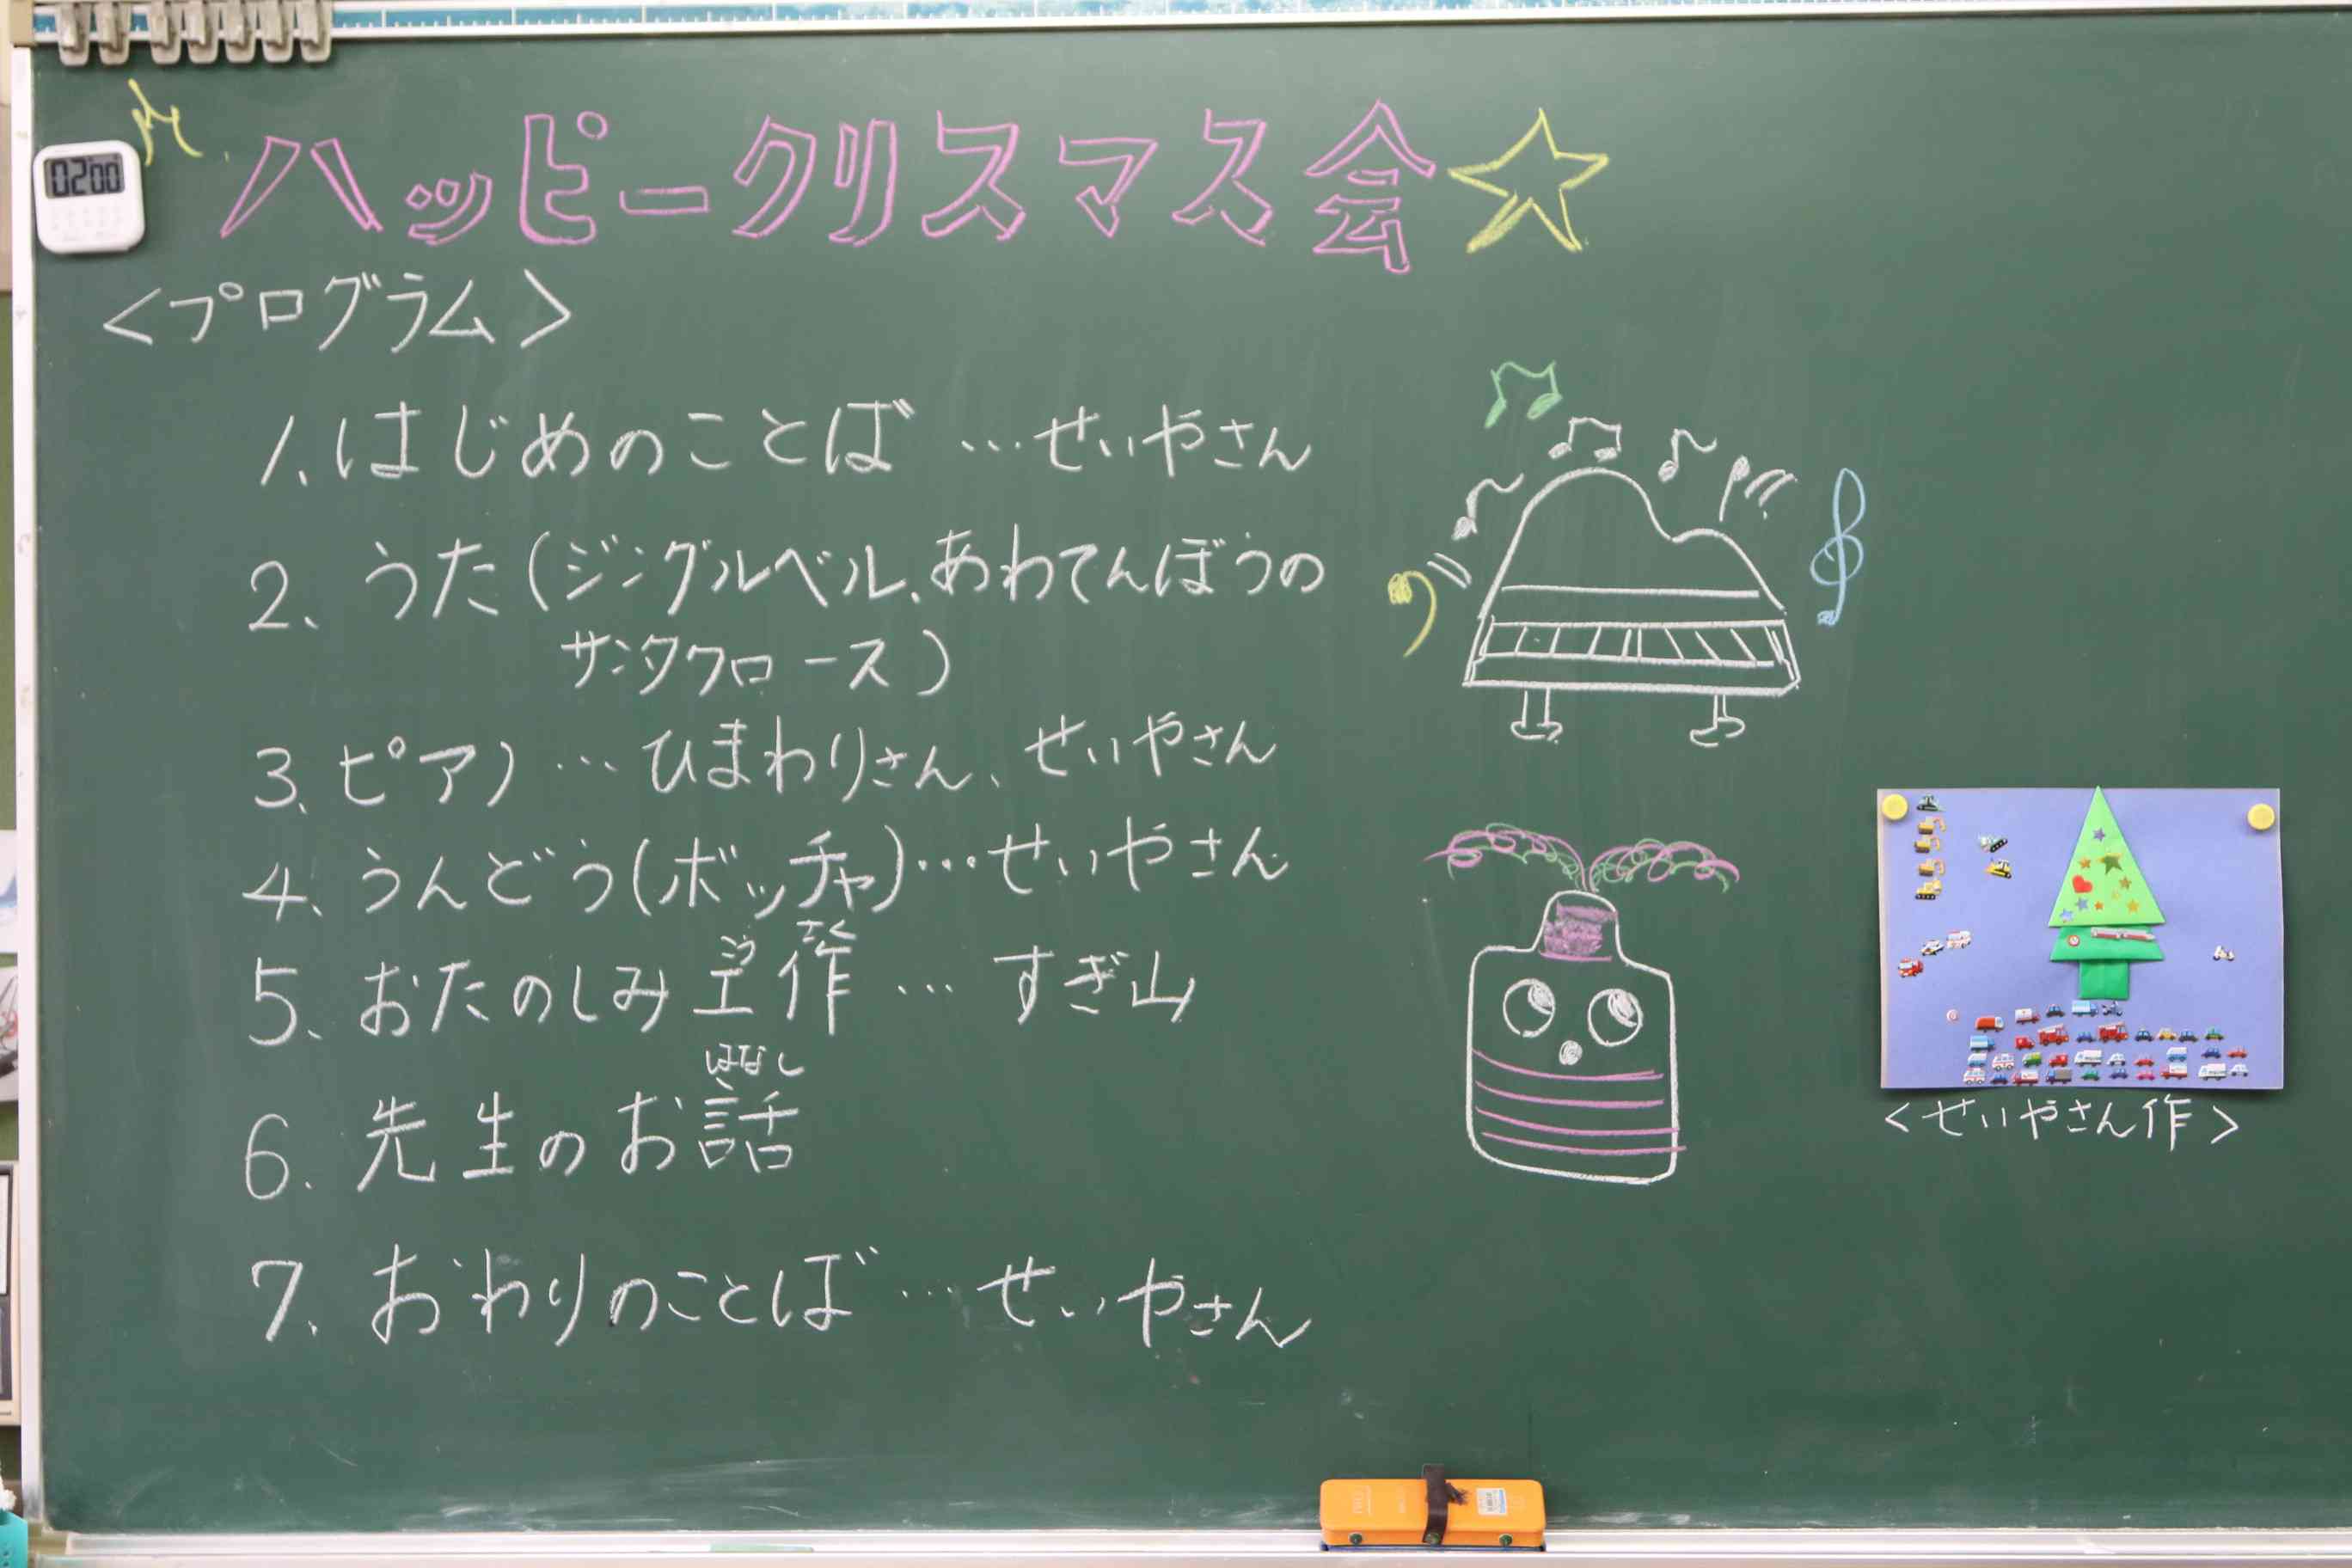 02 00
ハッピークリスマス会☆
<プログラム>
1. はじめのことば …せいやさん
2. うた(ジングルベル、あわてんぼうの
サンタクロース)
3. ピアノ … ひまわりさん、せいやさん
4. うんどう(ボッチャ)…せいやさん
ごう さく
5. おたのしみ工作 … すぎ山
はなし
6. 先生のお話
7. おわりのことば … せいやさん
<せいやさん作>